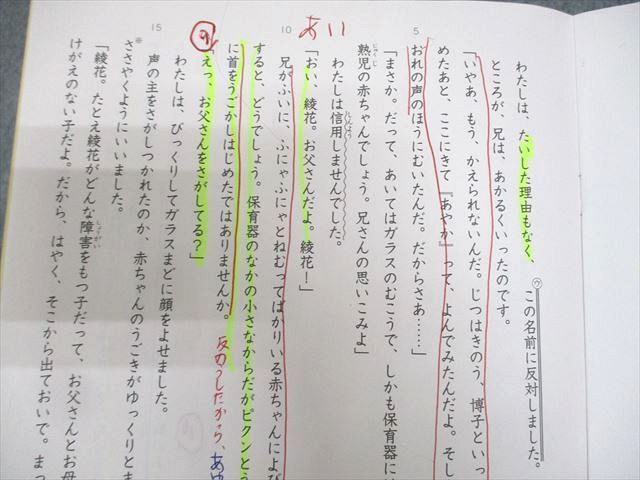 わたしは、たいした理由もなく、㋒この名前に反対しました。
ところが、兄は、あかるくいったのです。
「いやあ、もう、かえられないんだ。じつはきのう、博子といっ
めたあと、ここにきて『あやか』って、よんでみたんだよ。そし
5
おれの声のほうにむいたんだ。だからさあ……」
「まさか。だって、あいてはガラスのむこうで、しかも保育器に
熟児の赤ちゃんでしょう。兄さんの思いこみよ」
じゅくじ
わたしは信用しませんでした。
しんよう
「おい、綾花。お父さんだよ。綾花ー」
あい
10
兄がふいに、ふにゃふにゃとねむってばかりいる赤ちゃんによび
すると、どうでしょう。保育器のなかの小さなからだがピクンとう
に首をうごかしはじめたではありませんか。
反のうしたから、
「えっ、お父さんをさがしてる？」
わたしは、びっくりしてガラスまどに顔をよせました。
15
声の主をさがしつかれたのか、赤ちゃんのうごきがゆっくりとま
※ささやくようにいいました。
「綾花。たとえ綾花がどんな障害をもつ子だって、お父さんとお母
しょうがい
けがえのない子だよ。だから、はやく、そこから出ておいで。まっ